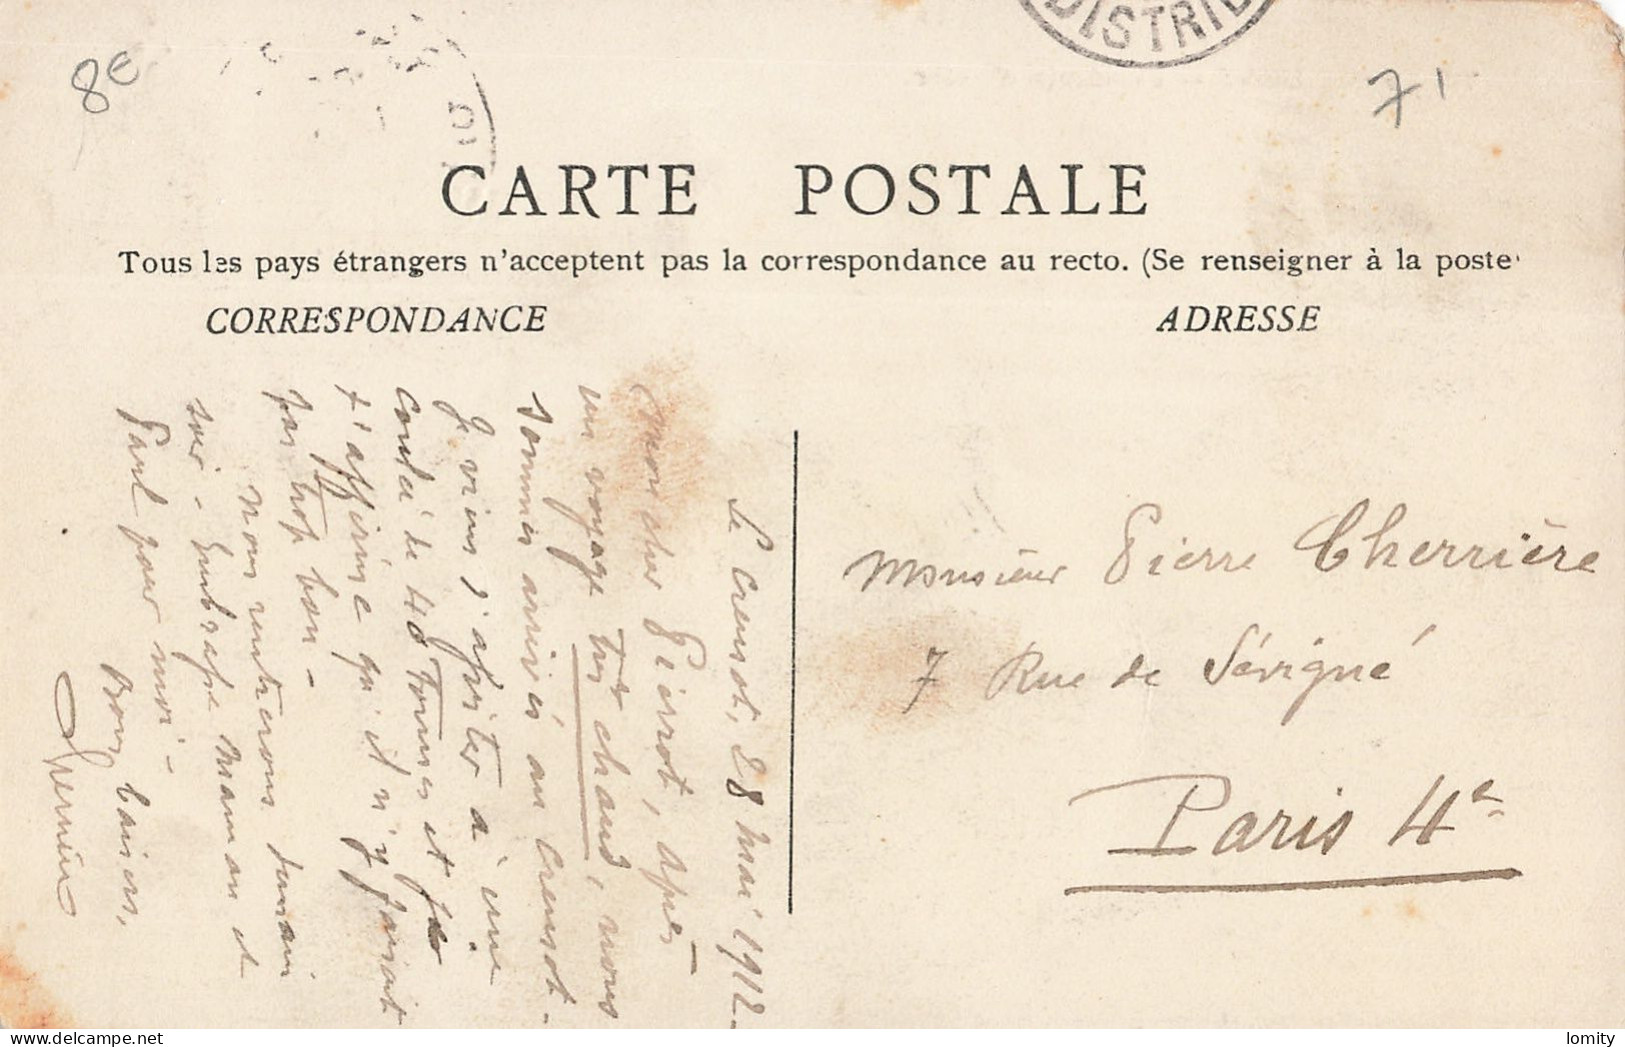 8e
71
DISTRIB
CARTE POSTALE
Tous les pays étrangers n'acceptent pas la correspondance au recto. (Se renseigner à la poste
CORRESPONDANCE
ADRESSE
Le Creusot, 28 mai 1912
Mon cher Pierrot, après
un voyage très chaud, nous
sommes arrivés au Creusot -
Je viens d'assister à une
coulée de 40 Tonnes et je
t'affirme qu'il n'y faisait
pas trop bon -
Nous rentrerons demain
soir - Embrasse Maman et
Paul pour moi -
Bons baisers,
Monsieur Pierre Cherrière
7 Rue de Sévigné
Paris 4e
lomity